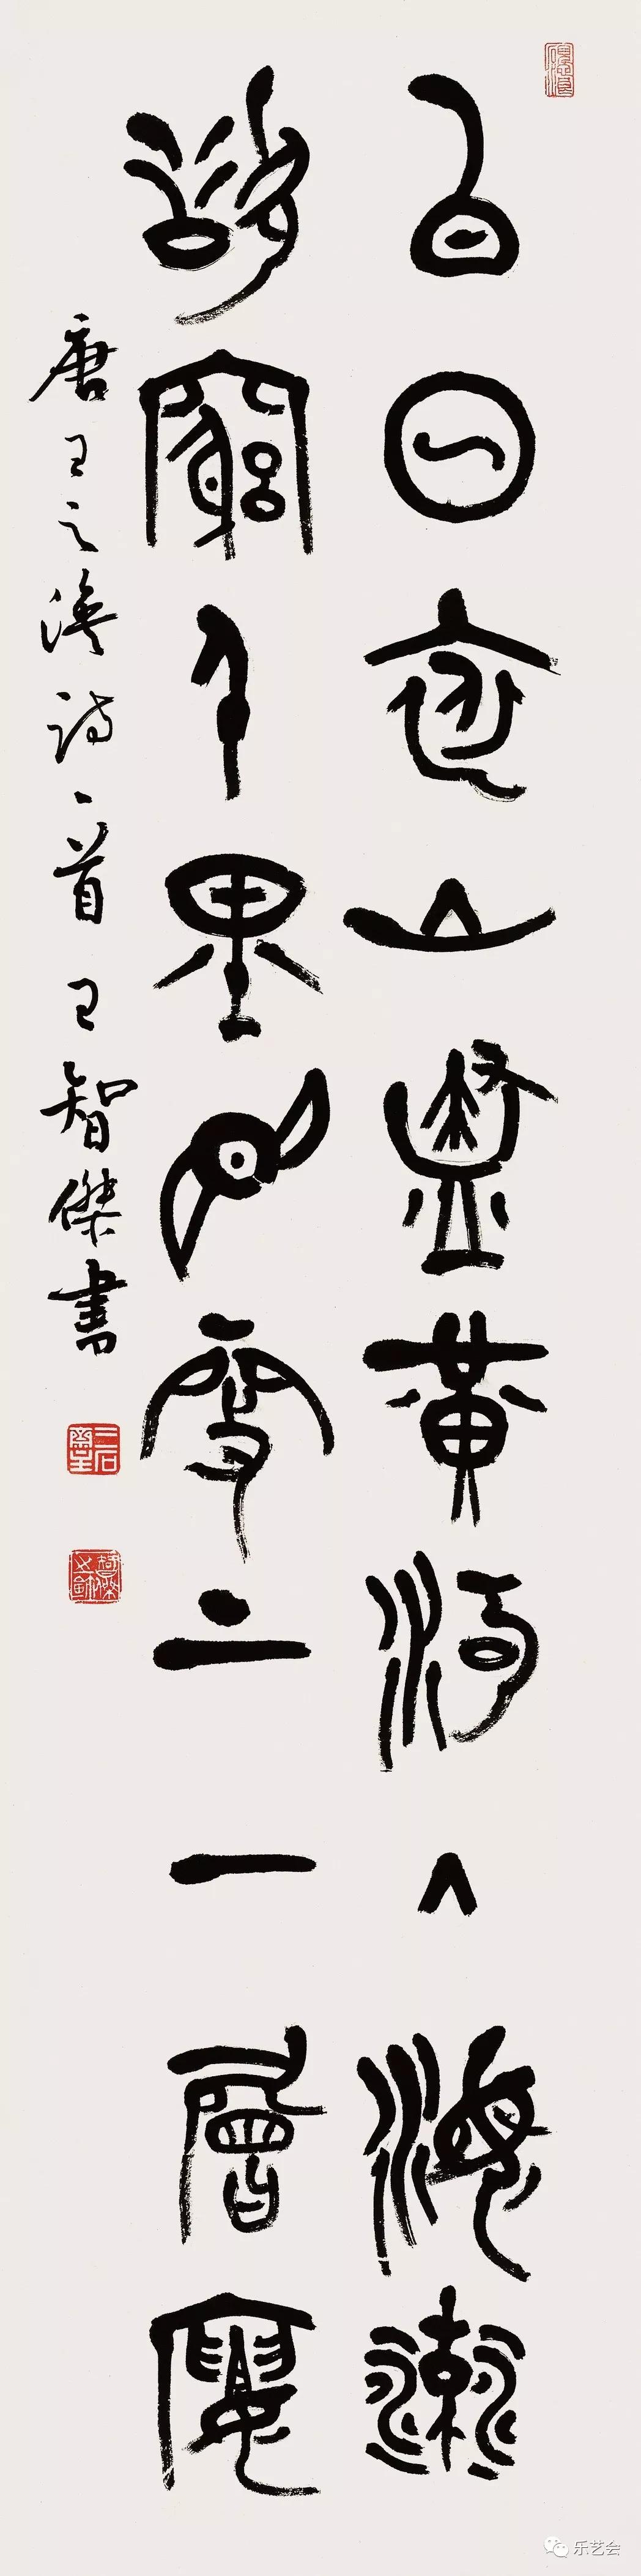 白日依山盡黄河入海流
欲窮千里目更上一層樓
唐王之渙詩一首王智傑書
乐艺会